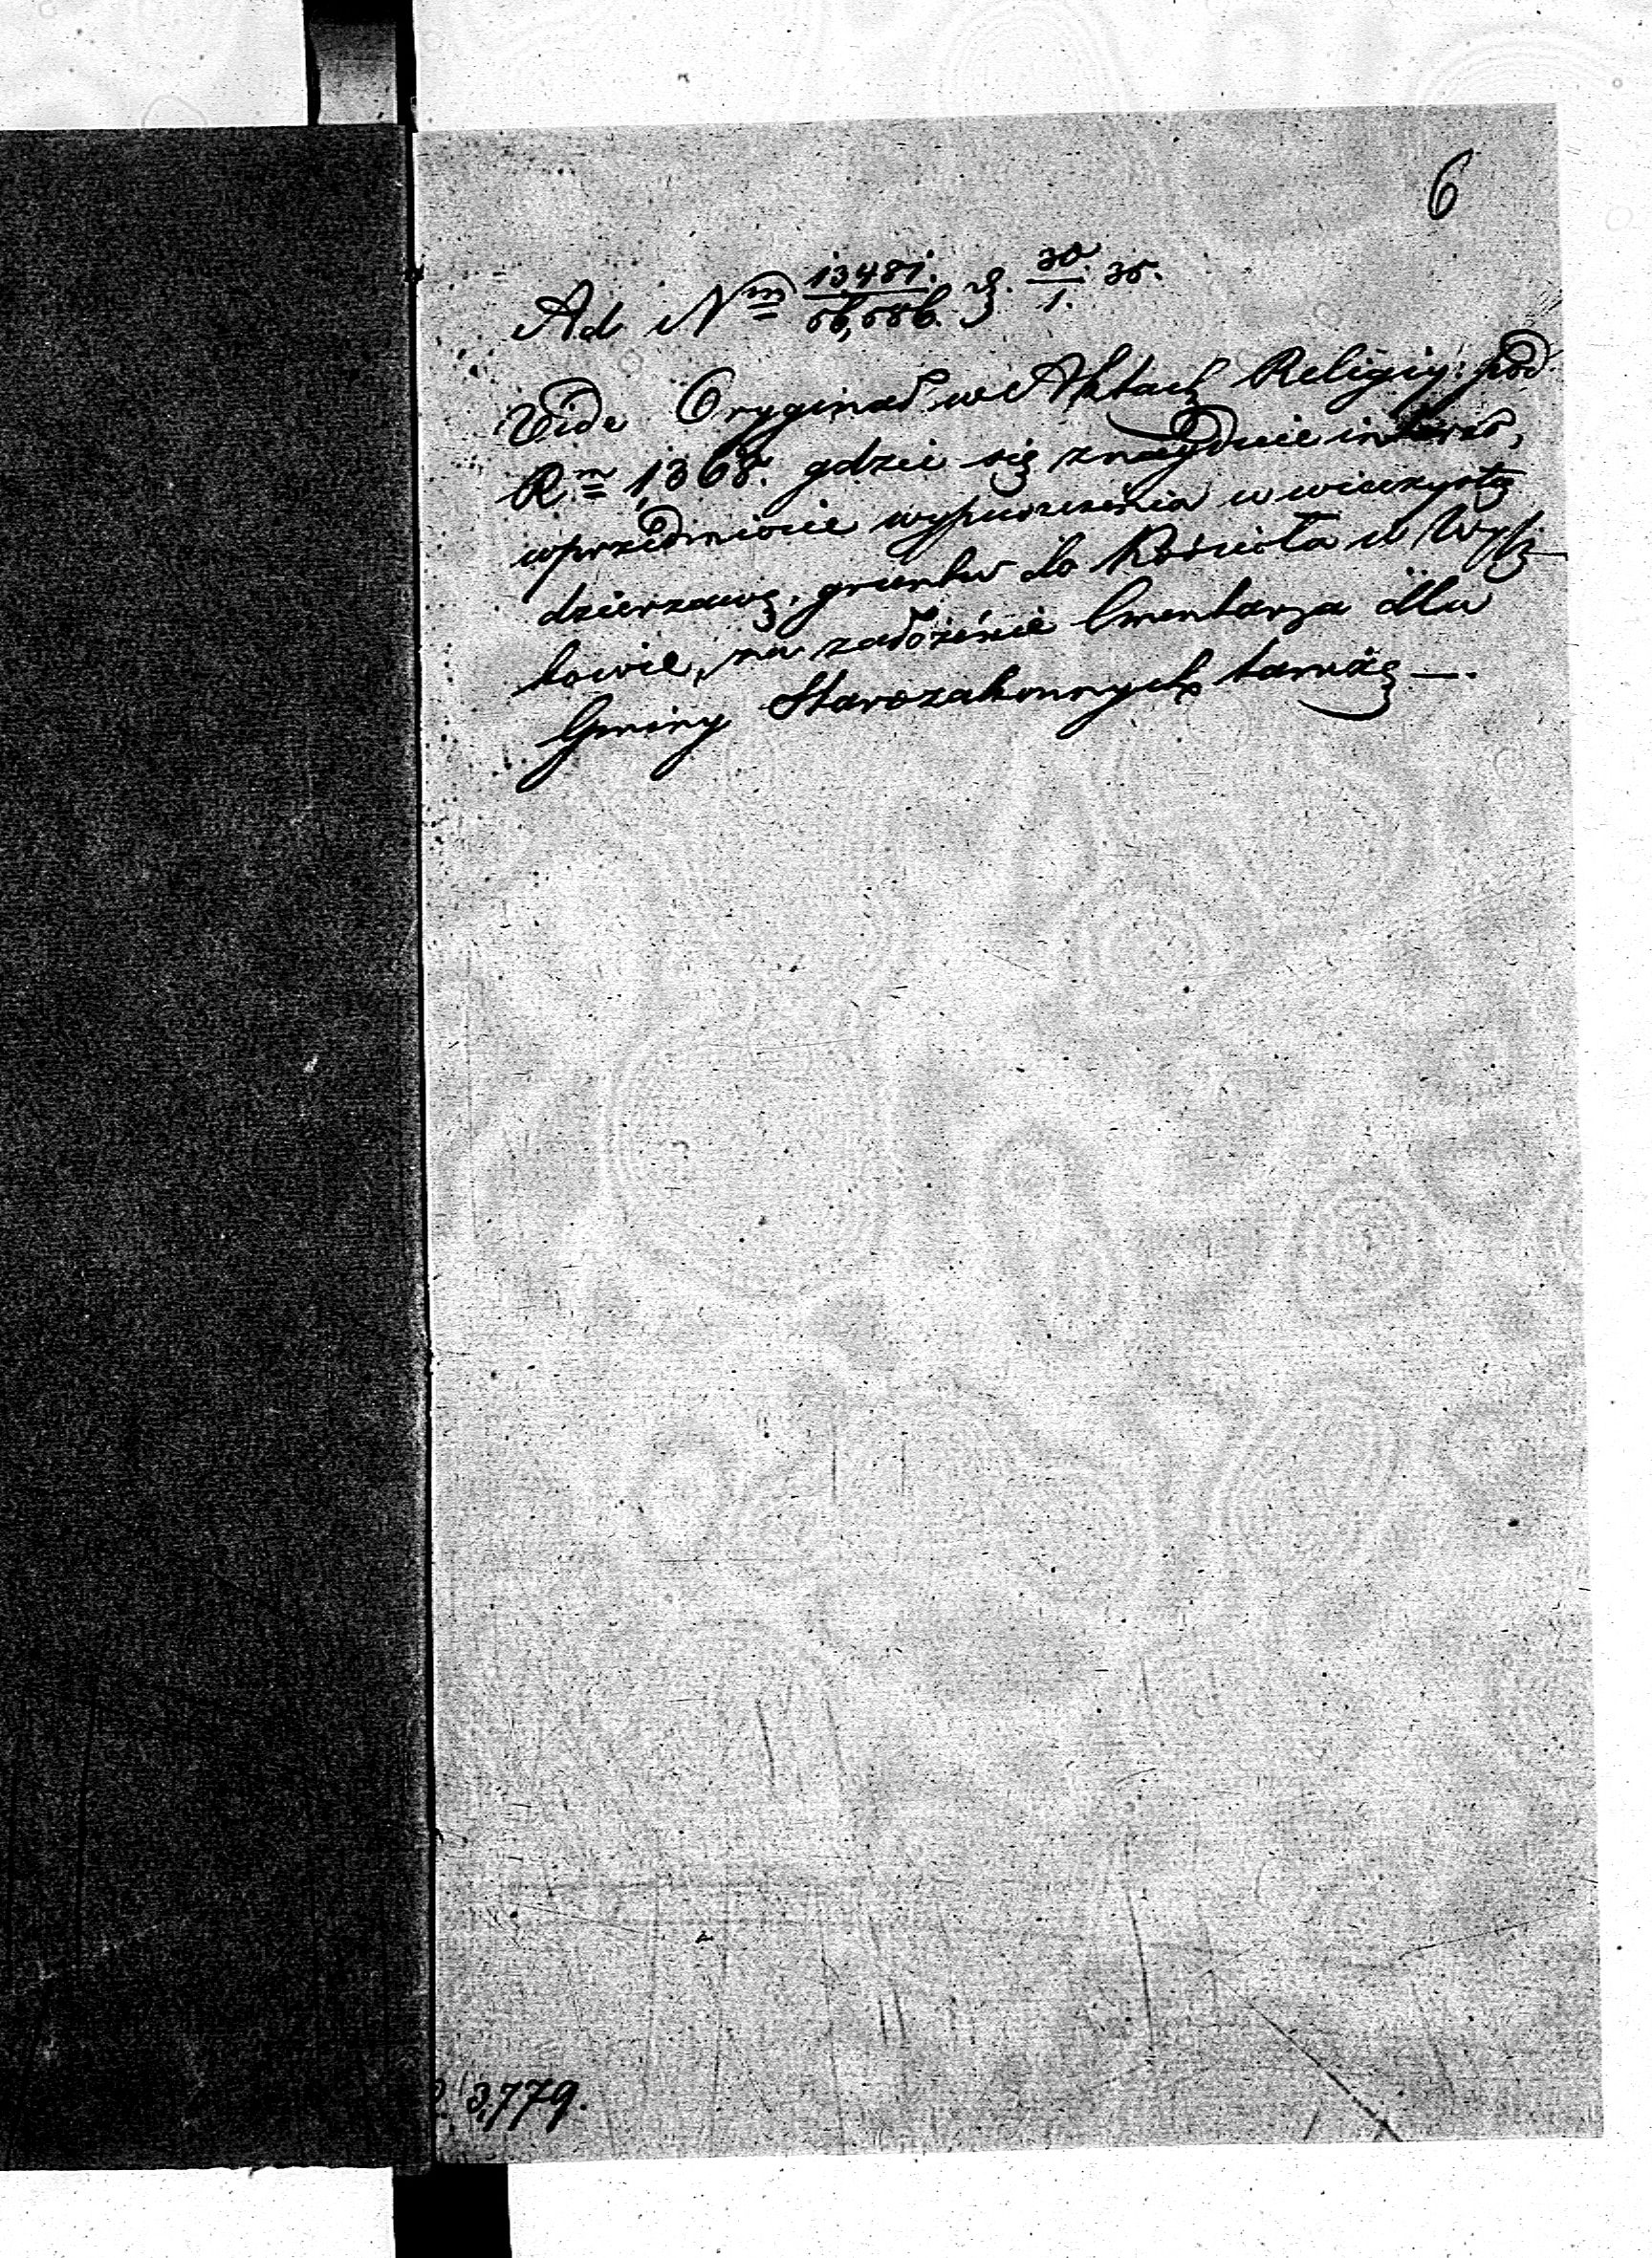 6
Ad Nrm 13,481./66,686. z. 30/1. 35.
Vide Oryginał w Aktach Religiy: pod
Rm 1,368. gdzie się znayduie interes,
wprzedmiocie wypuszczenia w wieczystą
dzierzawę, gruntu do Kościoła w Wysz-
kowie, na założenie Cmentarza dla
Gminy Starozakonnych tamże —.
3,779.